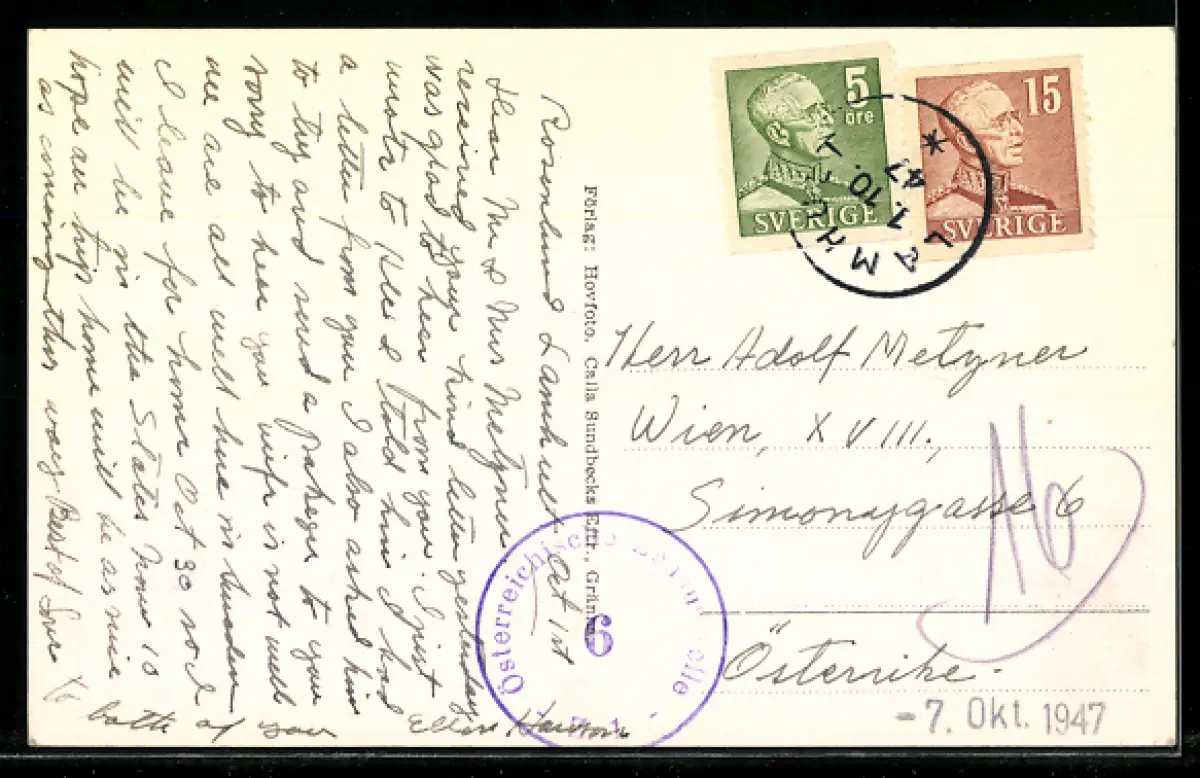 Rosenlund Lamhult Oct 1st
Dear Mr & Mrs Metzner
received your kind letter yesterday
was glad to hear from you. I just
wrote to & told him I had
a letter from you I also asked him
to try and send a package to you
sorry to hear your wife is not well
we are all well here in Sweden
I leave for home Oct 30 so I
will be in the States Nov 10
hope our trip home will be as nice
as coming this way. Best of
to both of you
Förlag: Hovfoto. Calla Sundbecks Eftr., Gränna
5
öre
SVERIGE
15
SVERIGE
LAMHULT
7.10.
47
Herr Adolf Metzner
Wien, XVIII.,
Simonygasse 6
Österrike.
Österreichische Zensurstelle
-7. Okt. 1947